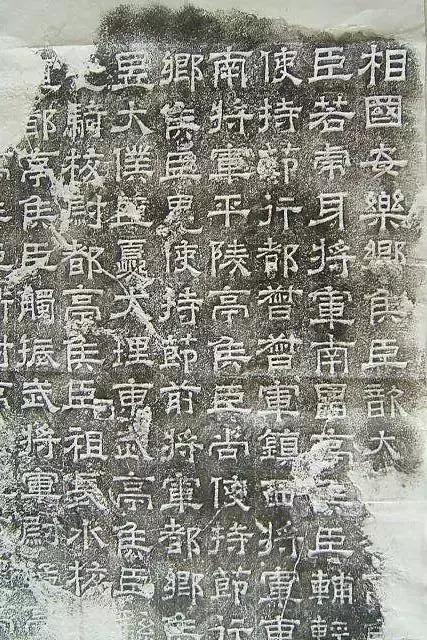 相國安樂鄉侯臣歆大
臣若虎牙將軍南昌亭侯臣輔輕
使持節行都督督軍鎮西將軍東
南將軍平陵亭侯臣尚使持節行
鄉侯臣晃使持節前將軍都鄉侯
昱大僕臣夔大理東武亭侯臣繇
騎校尉都亭侯臣祖長水校
都亭侯臣觸振武將軍尉